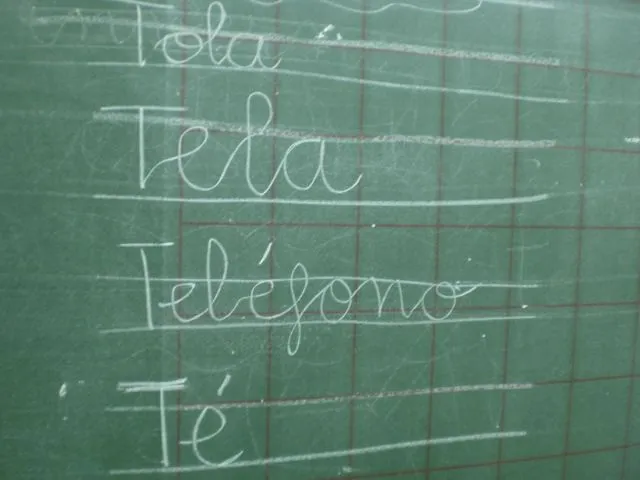 Tola
Tela
Teléfono
Té